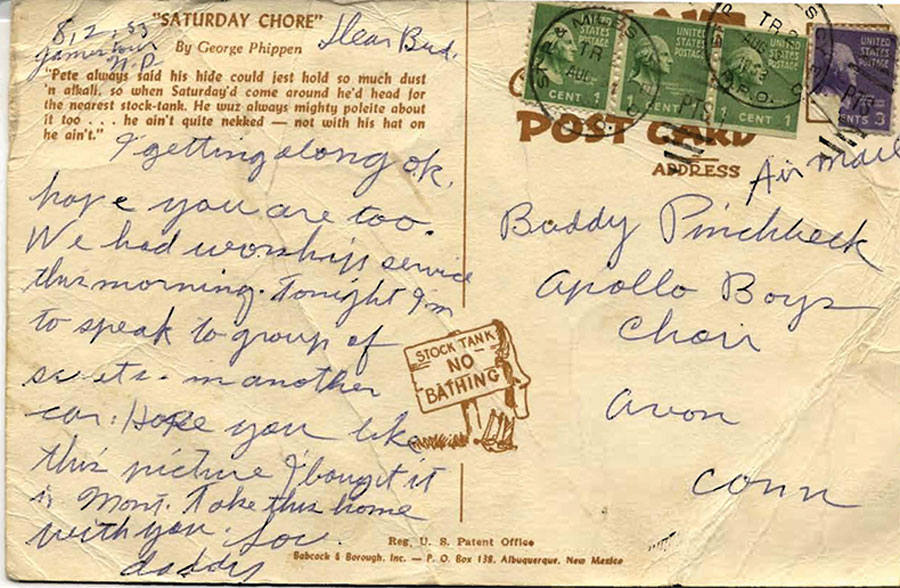 "SATURDAY CHORE"
By George Phippen
8, 2, 53
Jamestown
N.D.
Dear Bud,
"Pete always said his hide could jest hold so much dust
'n alkali, so when Saturday'd come around he'd head for
the nearest stock-tank. He wuz always mighty poleite about
it too . . . he ain't quite nekked — not with his hat on
he ain't."
I getting along ok,
hope you are too.
We had worship service
this morning. Tonight I'm
to speak to group of
in another
car. Hope you like
this picture I bought it
in Mont. Take this home
with you.
daddy
STOCK TANK
NO
BATHING
Reg. U. S. Patent Office
Babcock & Borough, Inc. — P. O. Box 138, Albuquerque, New Mexico
UNITED STATES POSTAGE
1 CENT 1
UNITED STATES POSTAGE
1 CENT 1
UNITED STATES POSTAGE
1 CENT 1
UNITED STATES POSTAGE
CENTS 3
TR
AUG
R.P.O.
POST CARD
ADDRESS
Air mail
Buddy Pinchbeck
Apollo Boys
Choir
Avon
Conn